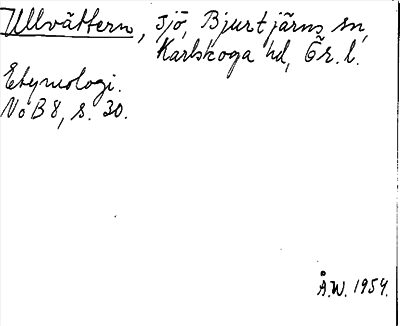 Ullvättern, sjö, Bjurtjärns sn,
Karlskoga hd, Ör. l.
Etymologi.
NoB 8, s. 30.
Å.W. 1954.